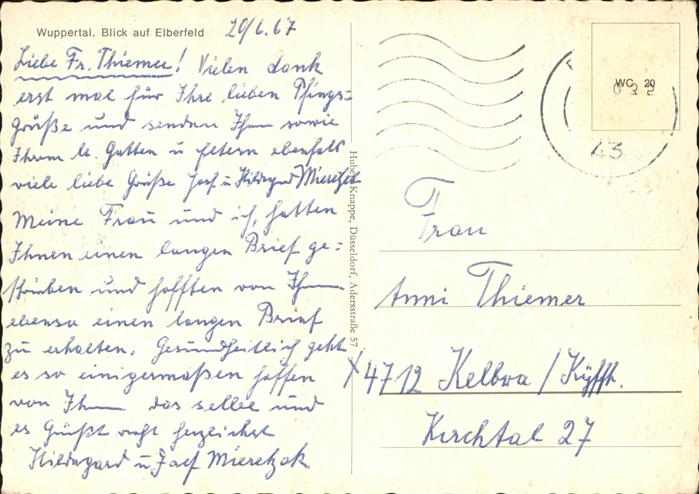 Wuppertal. Blick auf Elberfeld
20/6.67
Liebe Fr. Thiemer! Vielen dank
erst mal für Ihre lieben Pfings-
grüße und senden Ihn sowie
Ihrem lb. Gatten u Eltern ebenfals
viele liebe Grüße Josef u Hildegard Mieretzok
Meine Frau und ich, hatten
Ihnen einen langen Brief ge=
schrieben und hofften von Ihn
ebenso einen langen Brief
zu erhalten. Gesundheitlich geht
es so einigermaßen hoffen
von Ihn das selbe und
es Grüßt recht herzlichst
Hildegard u Josef Mieretzok
Hubert Knappe, Düsseldorf, Adersstraße 57
WC 20
43
Frau
Anni Thiemer
4712 Kelbra / Kyffh.
Kirchtal 27